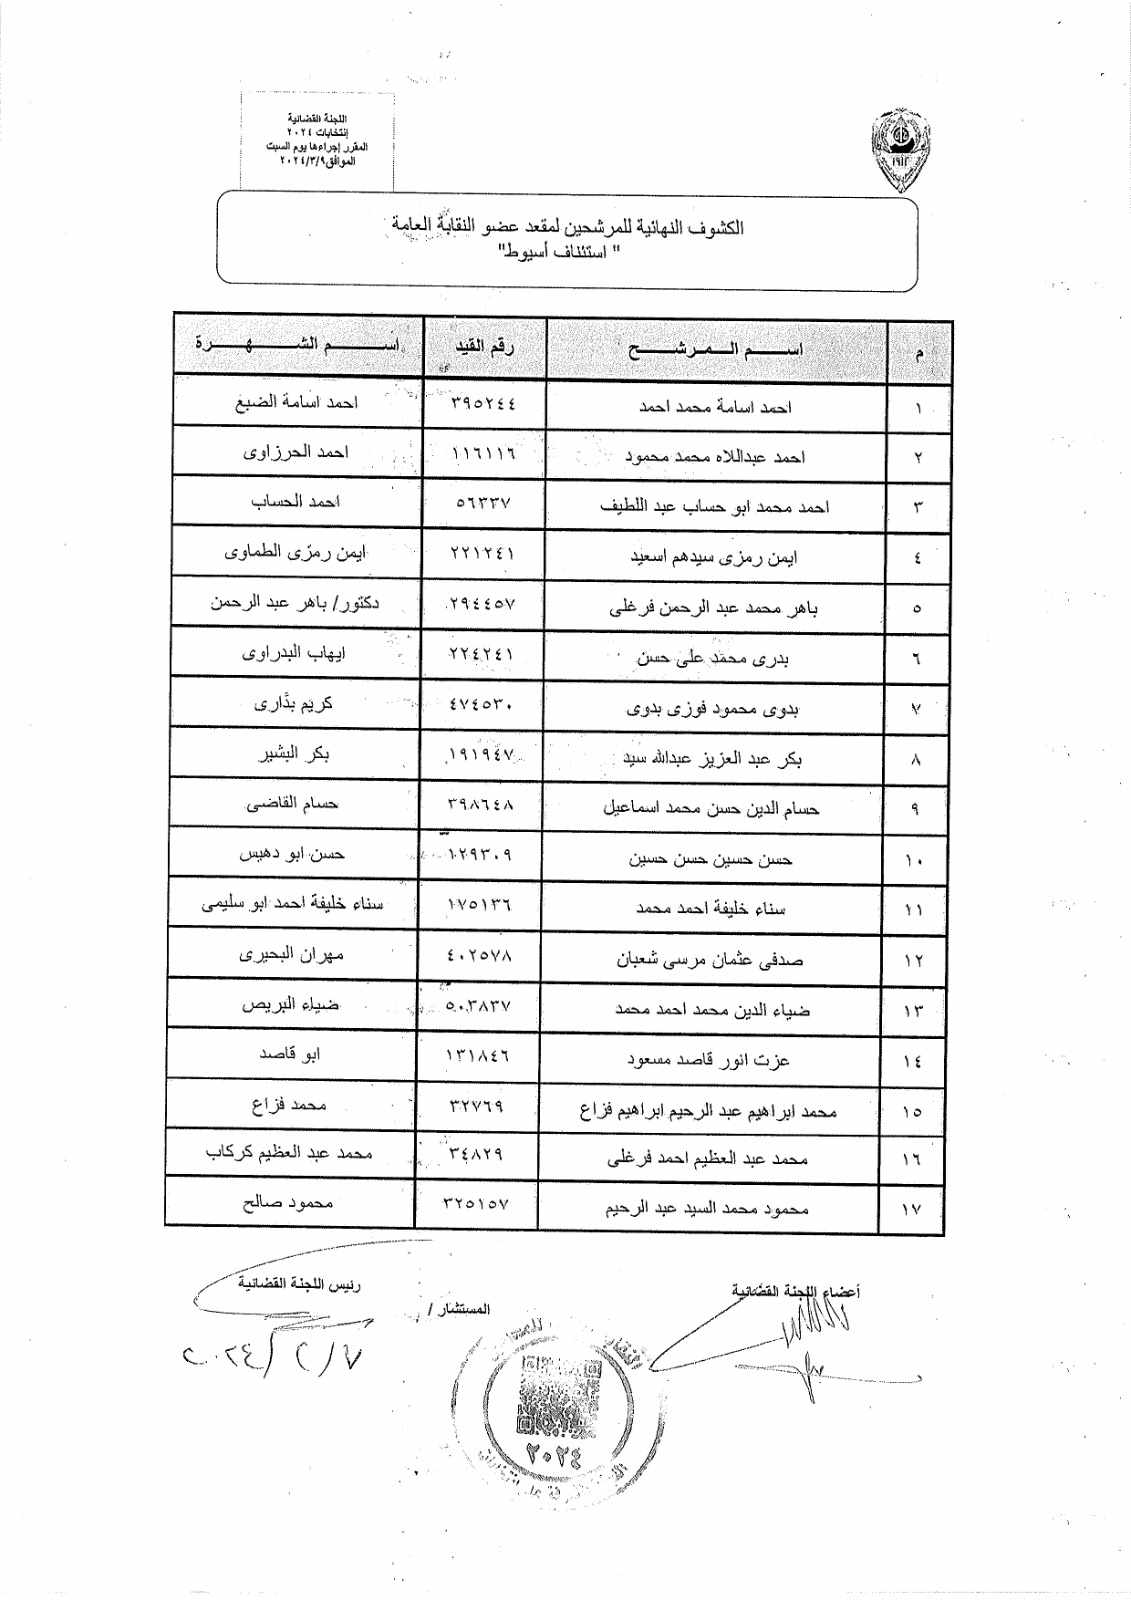 اللجنة القضائية
إنتخابات ٢٠٢٤
المقرر إجراءها يوم السبت
الموافق٢٠٢٤/٣/٩
١٩١٢
الكشوف النهائية للمرشحين لمقعد عضو النقابة العامة
" استئناف أسيوط"
م اســـم المـرشـــح رقم القيد اســـم الشـــهـــرة
١ احمد اسامة محمد احمد ٣٩٥٢٤٤ احمد اسامة الضبغ
٢ احمد عبداللاه محمد محمود ١١٦١١٦ احمد الحرزاوى
٣ احمد محمد ابو حساب عبد اللطيف ٥٦٣٣٧ احمد الحساب
٤ ايمن رمزى سيدهم اسعيد ٢٢١٢٤١ ايمن رمزى الطماوى
٥ باهر محمد عبد الرحمن فرغلى ٢٩٤٤٥٧ دكتور/ باهر عبد الرحمن
٦ بدرى محمد على حسن ٢٢٤٢٤١ ايهاب البدراوى
٧ بدوى محمود فوزى بدوى ٤٧٤٥٣٠ كريم بدارى
٨ بكر عبد العزيز عبدالله سيد ١٩١٩٤٧ بكر البشير
٩ حسام الدين حسن محمد اسماعيل ٣٩٨٦٤٨ حسام القاضى
١٠ حسن حسين حسن حسين ١٢٩٣٠٩ حسن ابو دهيس
١١ سناء خليفة احمد محمد ١٧٥١٣٦ سناء خليفة احمد ابو سليمى
١٢ صدفى عثمان مرسى شعبان ٤٠٢٥٧٨ مهران البحيرى
١٣ ضياء الدين محمد احمد محمد ٥٠٣٨٣٧ ضياء البريص
١٤ عزت انور قاصد مسعود ١٣١٨٤٦ ابو قاصد
١٥ محمد ابراهيم عبد الرحيم ابراهيم فزاع ٣٢٧٦٩ محمد فزاع
١٦ محمد عبد العظيم احمد فرغلى ٣٤٨٢٩ محمد عبد العظيم كركاب
١٧ محمود محمد السيد عبد الرحيم ٣٢٥١٥٧ محمود صالح
أعضاء اللجنة القضائية
رئيس اللجنة القضائية
المستشار /
٢٠٢٤/٢/٧
٢٠٢٤